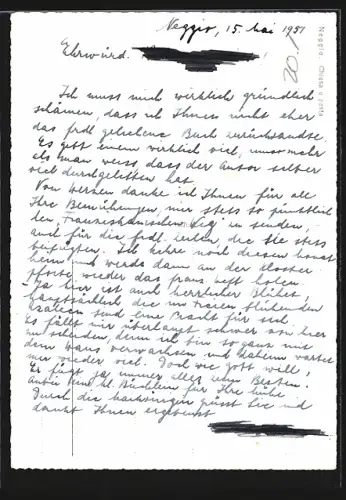 Neggio, 15. Mai 1951
Ehrwürd.
Ich muss mich wirklich gründlich
schämen, dass ich Ihnen nicht eher
das frdl. geliehene Buch zurücksandte.
Es gibt einem wirklich viel, umso mehr
als man weiss dass der Autor selber
viel durchgelitten hat.
Von Herzen danke ich Ihnen für all
Ihre Bemühungen, mir stets so pünktlich
den Franziskanischen zu senden,
auch für die frdl. Zeilen, die Sie stets
beifügten. Ich kehre noch diesen Monat
heim und werde dann an der Kloster-
pforte wieder das franz. Heft holen.
Ja hier ist auch herrlicher Blühet,
hauptsächlich die im Freien blühenden
Azaleen sind eine Pracht für sich.
Es fällt mir überhaupt schwer von hier
zu scheiden, denn ich bin so ganz mit
dem Haus verwachsen und daheim wartet
mir wieder viel. Doch wie Gott will,
Er fügt ja immer alles zum Besten.
Anbei ein kl. Büchlein für Ihre Mühe.
Durch die grüsst Sie und
dankt Ihnen ergebenst
Neggio. Chiesa e
20.1